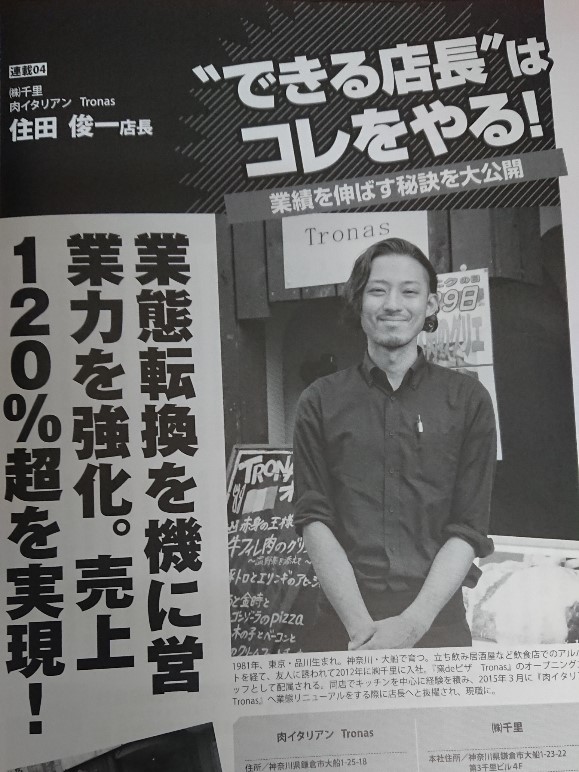 連載04
㈱千里
肉イタリアン Tronas
住田 俊一店長
“できる店長”は
コレをやる!
業績を伸ばす秘訣を大公開
業態転換を機に営
業力を強化。売上
120%超を実現!
Tronas
9日
TRONA
赤身の王様
牛フィレ肉のグリ
1981年、東京・品川生まれ。神奈川・大船で育つ。立ち飲み居酒屋など飲食店でのアルバ
トを経て、友人に誘われて2012年に㈱千里に入社。『窯deピザ Tronas』のオープニングス
ッフとして配属される。同店でキッチンを中心に経験を積み、2015年3月に『肉イタリア
Tronas』へ業態リニューアルをする際に店長へと抜擢され、現職に。
肉イタリアン Tronas
住所/神奈川県鎌倉市大船1-25-18
㈱千里
本社住所/神奈川県鎌倉市大船1-23-22
第3千里ビル4F